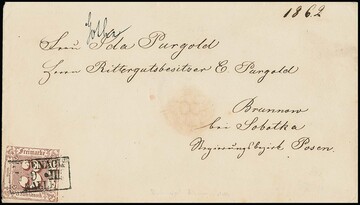 1862
Gotha
Frau Ida Purgold
Herrn Rittergutsbesitzer E. Purgold
Brunnow
bei Sobotka
Regierungsbezirk Posen.
Freimarke